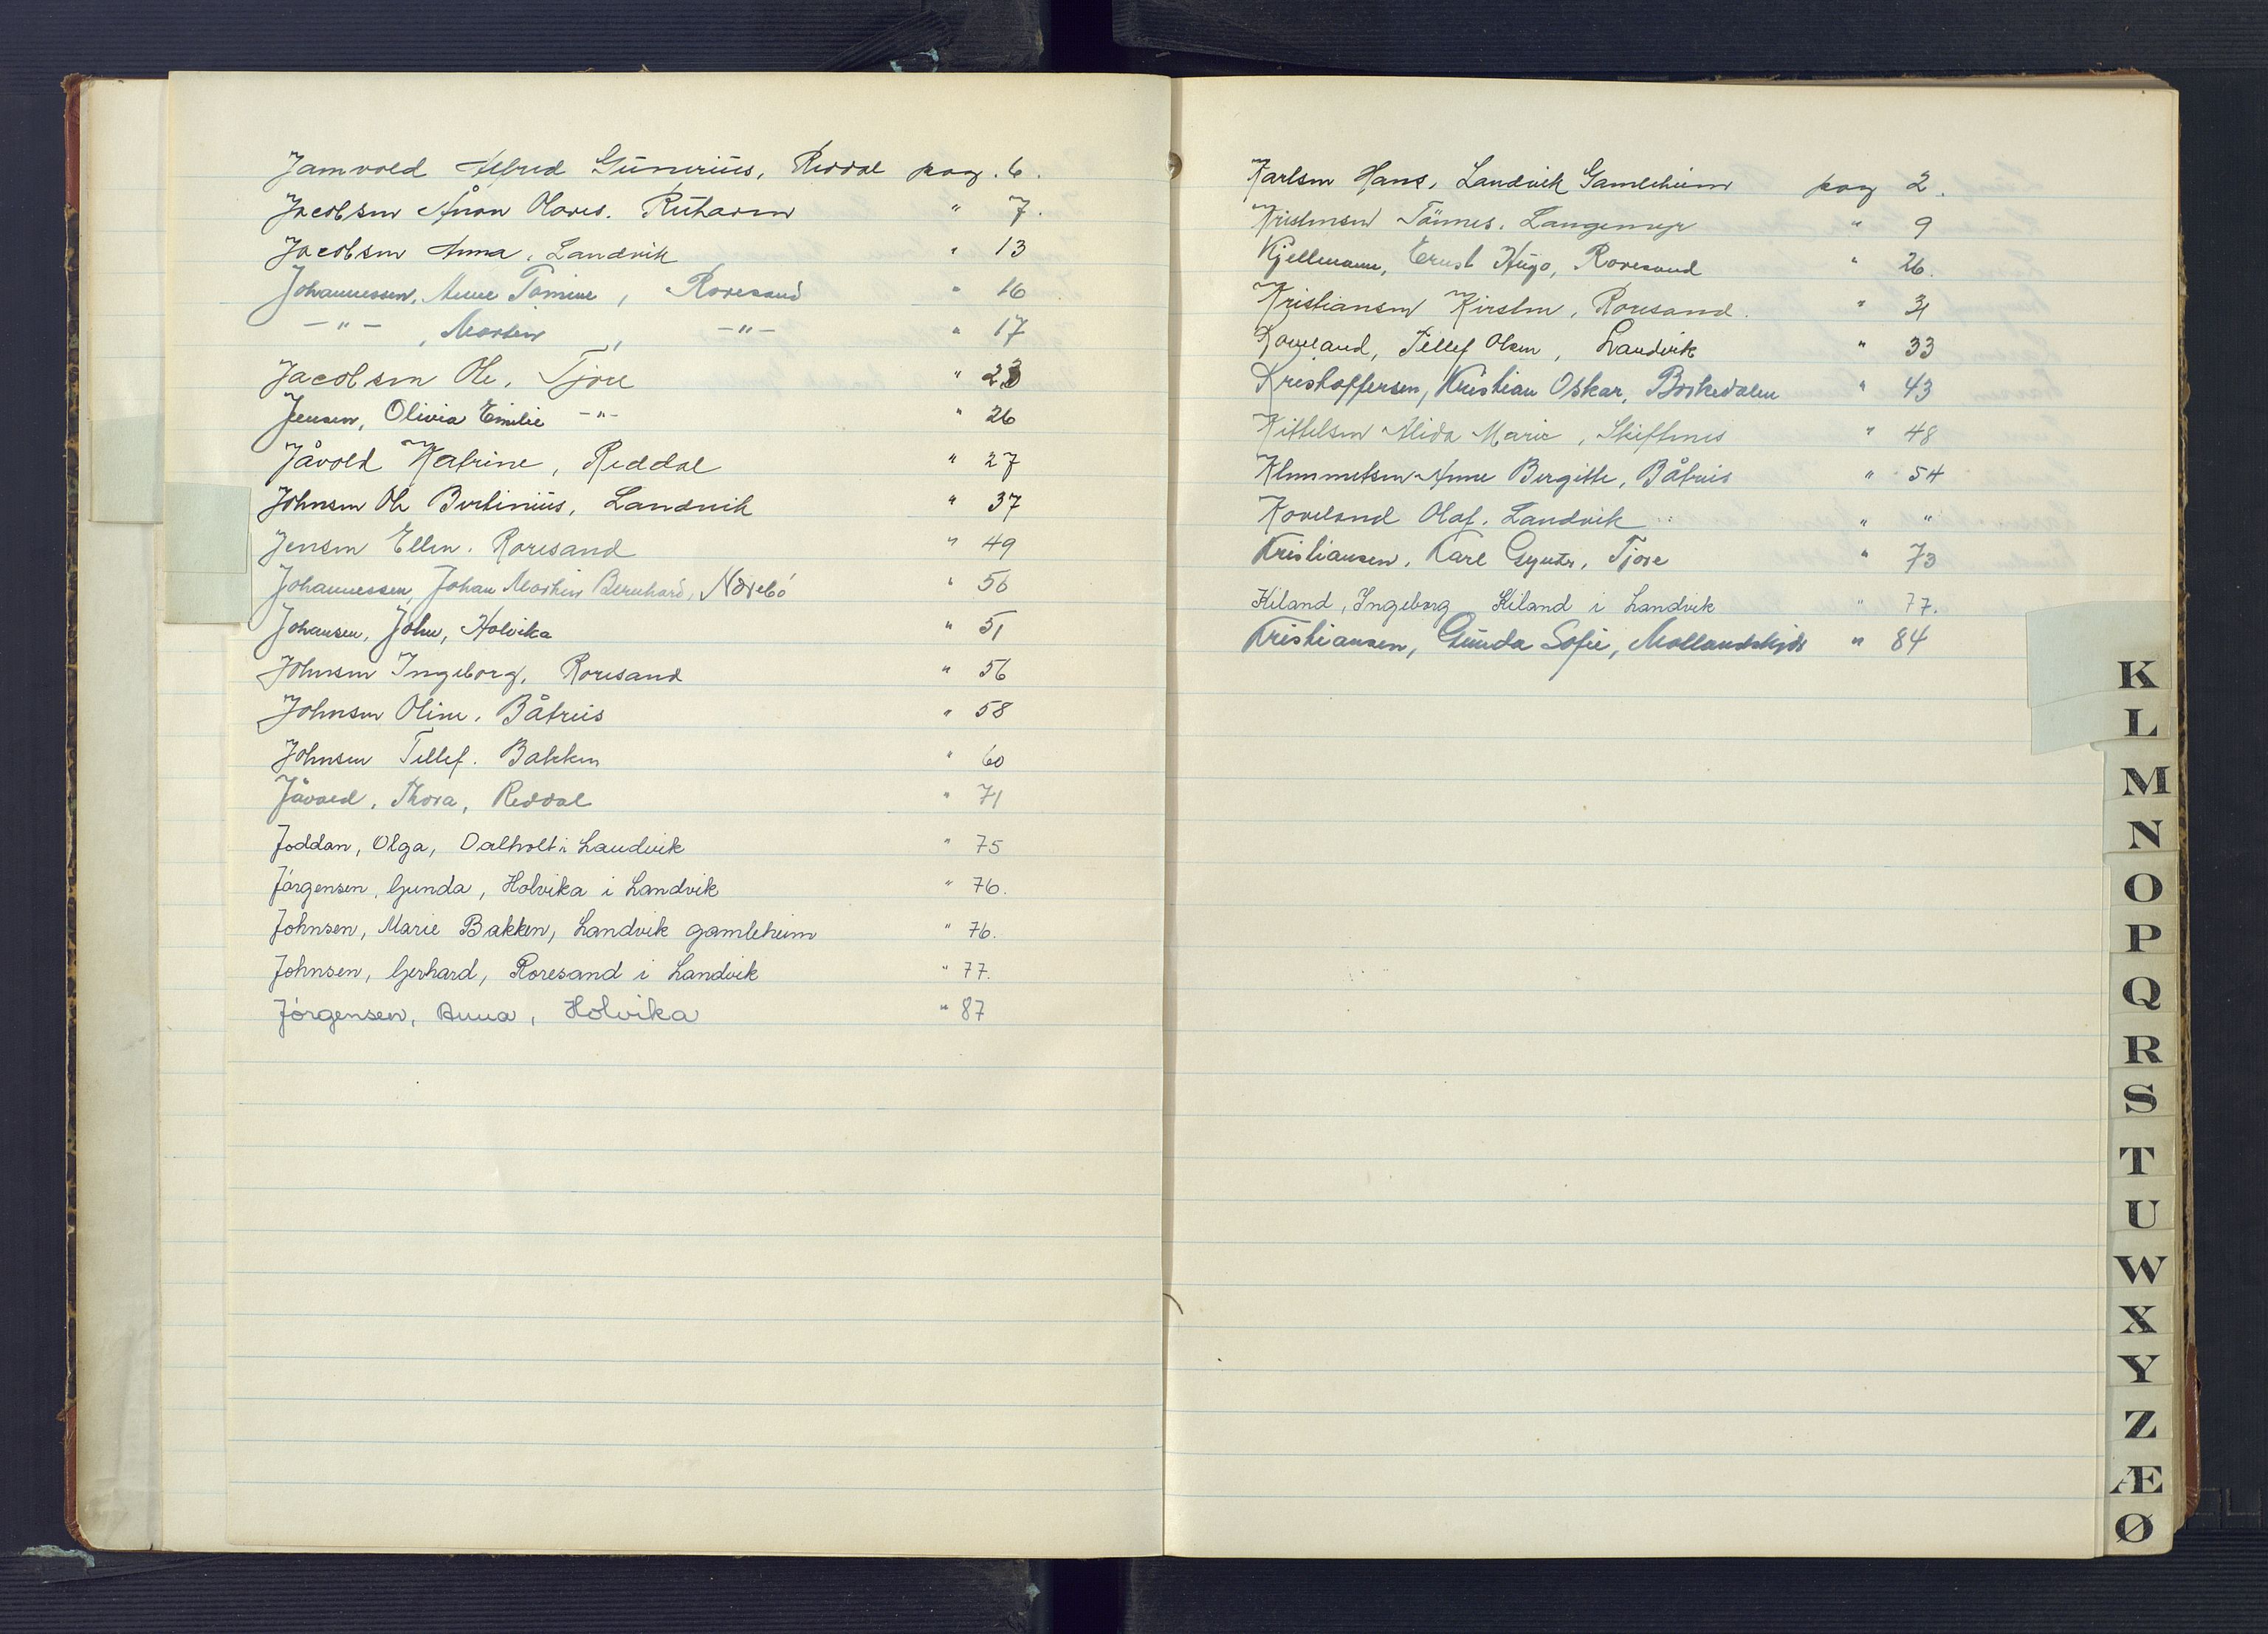 Jamvold Alfred Gunerius, Reddal pag. 6.
Jacobsen Ånon Olaves. " 7.
Jacobsen Anna, Landvik " 13
Johannessen, Anne Tomine, Roresand " 16
— " — , Martin, — " — " 17
Jacobsen Ole, Tjore " 23
Jensen, Olivia Emilie — " — " 26
Jåvold Katrine, Reddal " 27
Johnsen Ole Bertinius, Landvik " 37
Jensen Ellen. Roresand " 49
Johannessen, Johan Martin Bernhard, Nærebö " 56
Johansen, John, Holvika " 51
Johnsen Ingeborg, Roresand " 56
Johnsen Oline, Båtreis " 58
Johnsen Tellef. Bakken " 60
Jåvold, Thora, Reddal " 71
Joddan, Olga, Dalholt i Landvik " 75
Jörgensen, Gunda, Holvika i Landvik " 76.
Johnsen, Marie Bakken, Landvik gamleheim " 76.
Johnsen, Gerhard, Roresand i Landvik " 77.
Jörgensen, Anna, Holvika " 87
Karlsen Hans, Landvik Gamleheim pag 2.
Kristensen Tönnes, Langemyr " 9
Kjellmann, Ernst Hugo, Roresand " 26.
Kristiansen Kirsten, Roresand. " 31
Koveland, Tellef Olsen, Landvik " 33
Kristoffersen, Kristian Oskar, Bokedalen " 43
Kittelsen Alida Marie, Skiftenes " 48
Klemmetsen Anne Birgitte, Båtreis " 54
Koveland Olaf. Landvik " "
Kristiansen, Karl Gynter, Tjore " 73
Kiland, Ingeborg Kiland i Landvik " 77.
Kristiansen, Gunda Sofie, " 84
K
L
M
N
O
P
Q
R
S
T
U
W
X
Y
Z
Æ
Ø